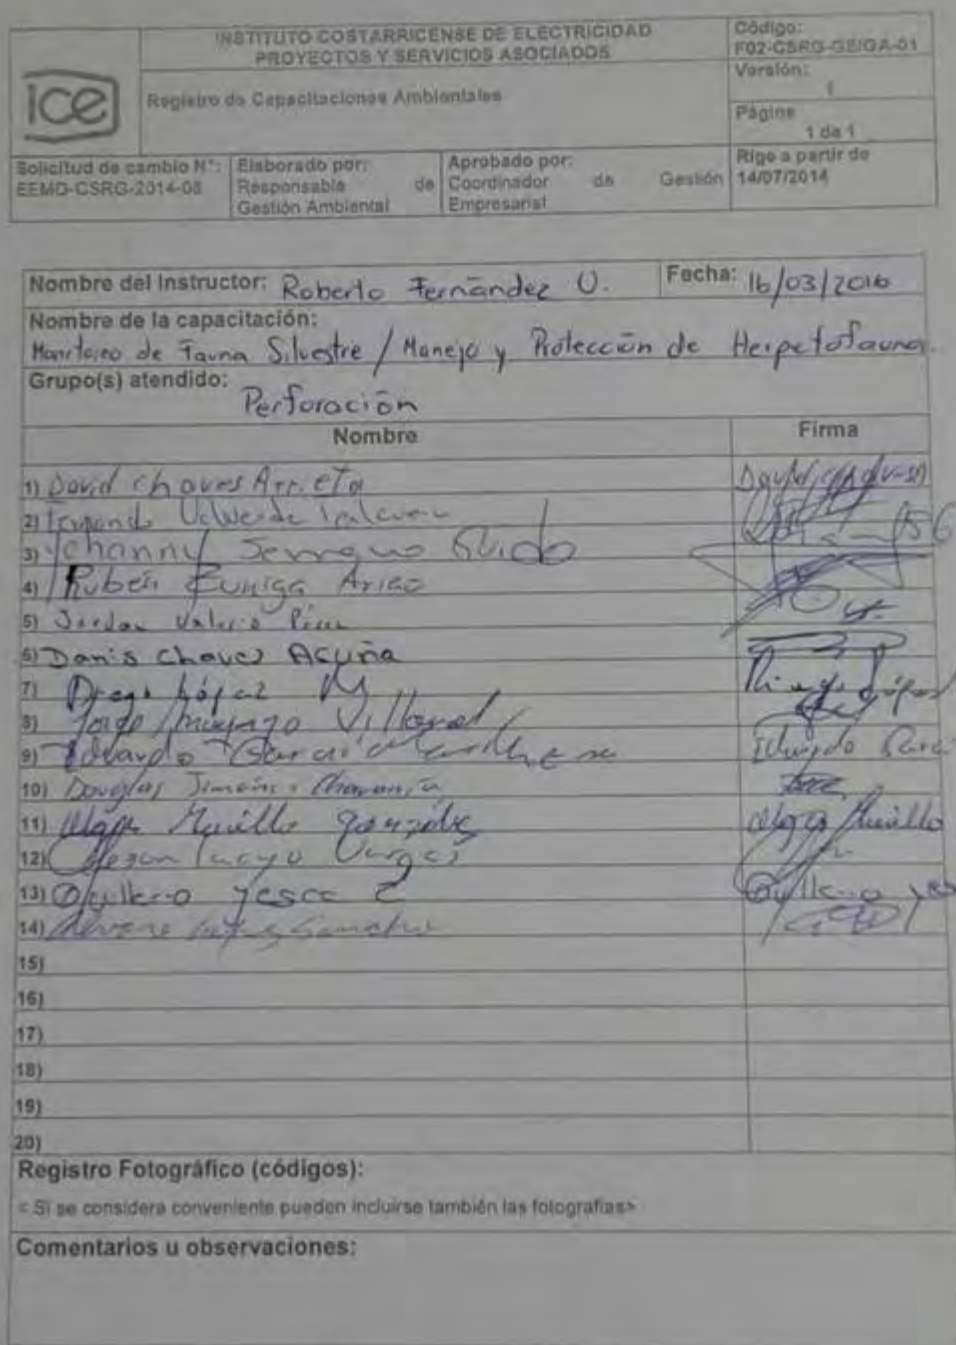 INSTITUTO COSTARRICENSE DE ELECTRICIDAD
PROYECTOS Y SERVICIOS ASOCIADOS
Código:
F02-CSRG-GEIGA-01
ice
Registro de Capacitaciones Ambientales
Versión:
1
Página
1 de 1
Solicitud de cambio N°:
EEMD-CSRG-2014-08
Elaborado por:
Responsable de
Gestión Ambiental
Aprobado por:
Coordinador de Gestión
Empresarial
Rige a partir de
14/07/2014
Nombre del Instructor: Roberto Fernández U.
Fecha: 16/03/2016
Nombre de la capacitación:
Monitoreo de Fauna Silvestre / Manejo y Protección de Herpetofauna.
Grupo(s) atendido:
Perforación
Nombre Firma
1) David Chaves Arrieta
2) Valverde
3) Yohanny
4) Ruben Zuniga Arias
5) Jordan Valerio
6) Danis Chaves Acuña
7) Diego López M
8) Jorge Villareal
9) Eduardo Garcia Eduardo
10) Douglas
11) Murillo González Murillo
12) Vargas
13)
14)
15)
16)
17)
18)
19)
20)
Registro Fotográfico (códigos):
< Si se considera conveniente pueden incluirse también las fotografías>
Comentarios u observaciones: